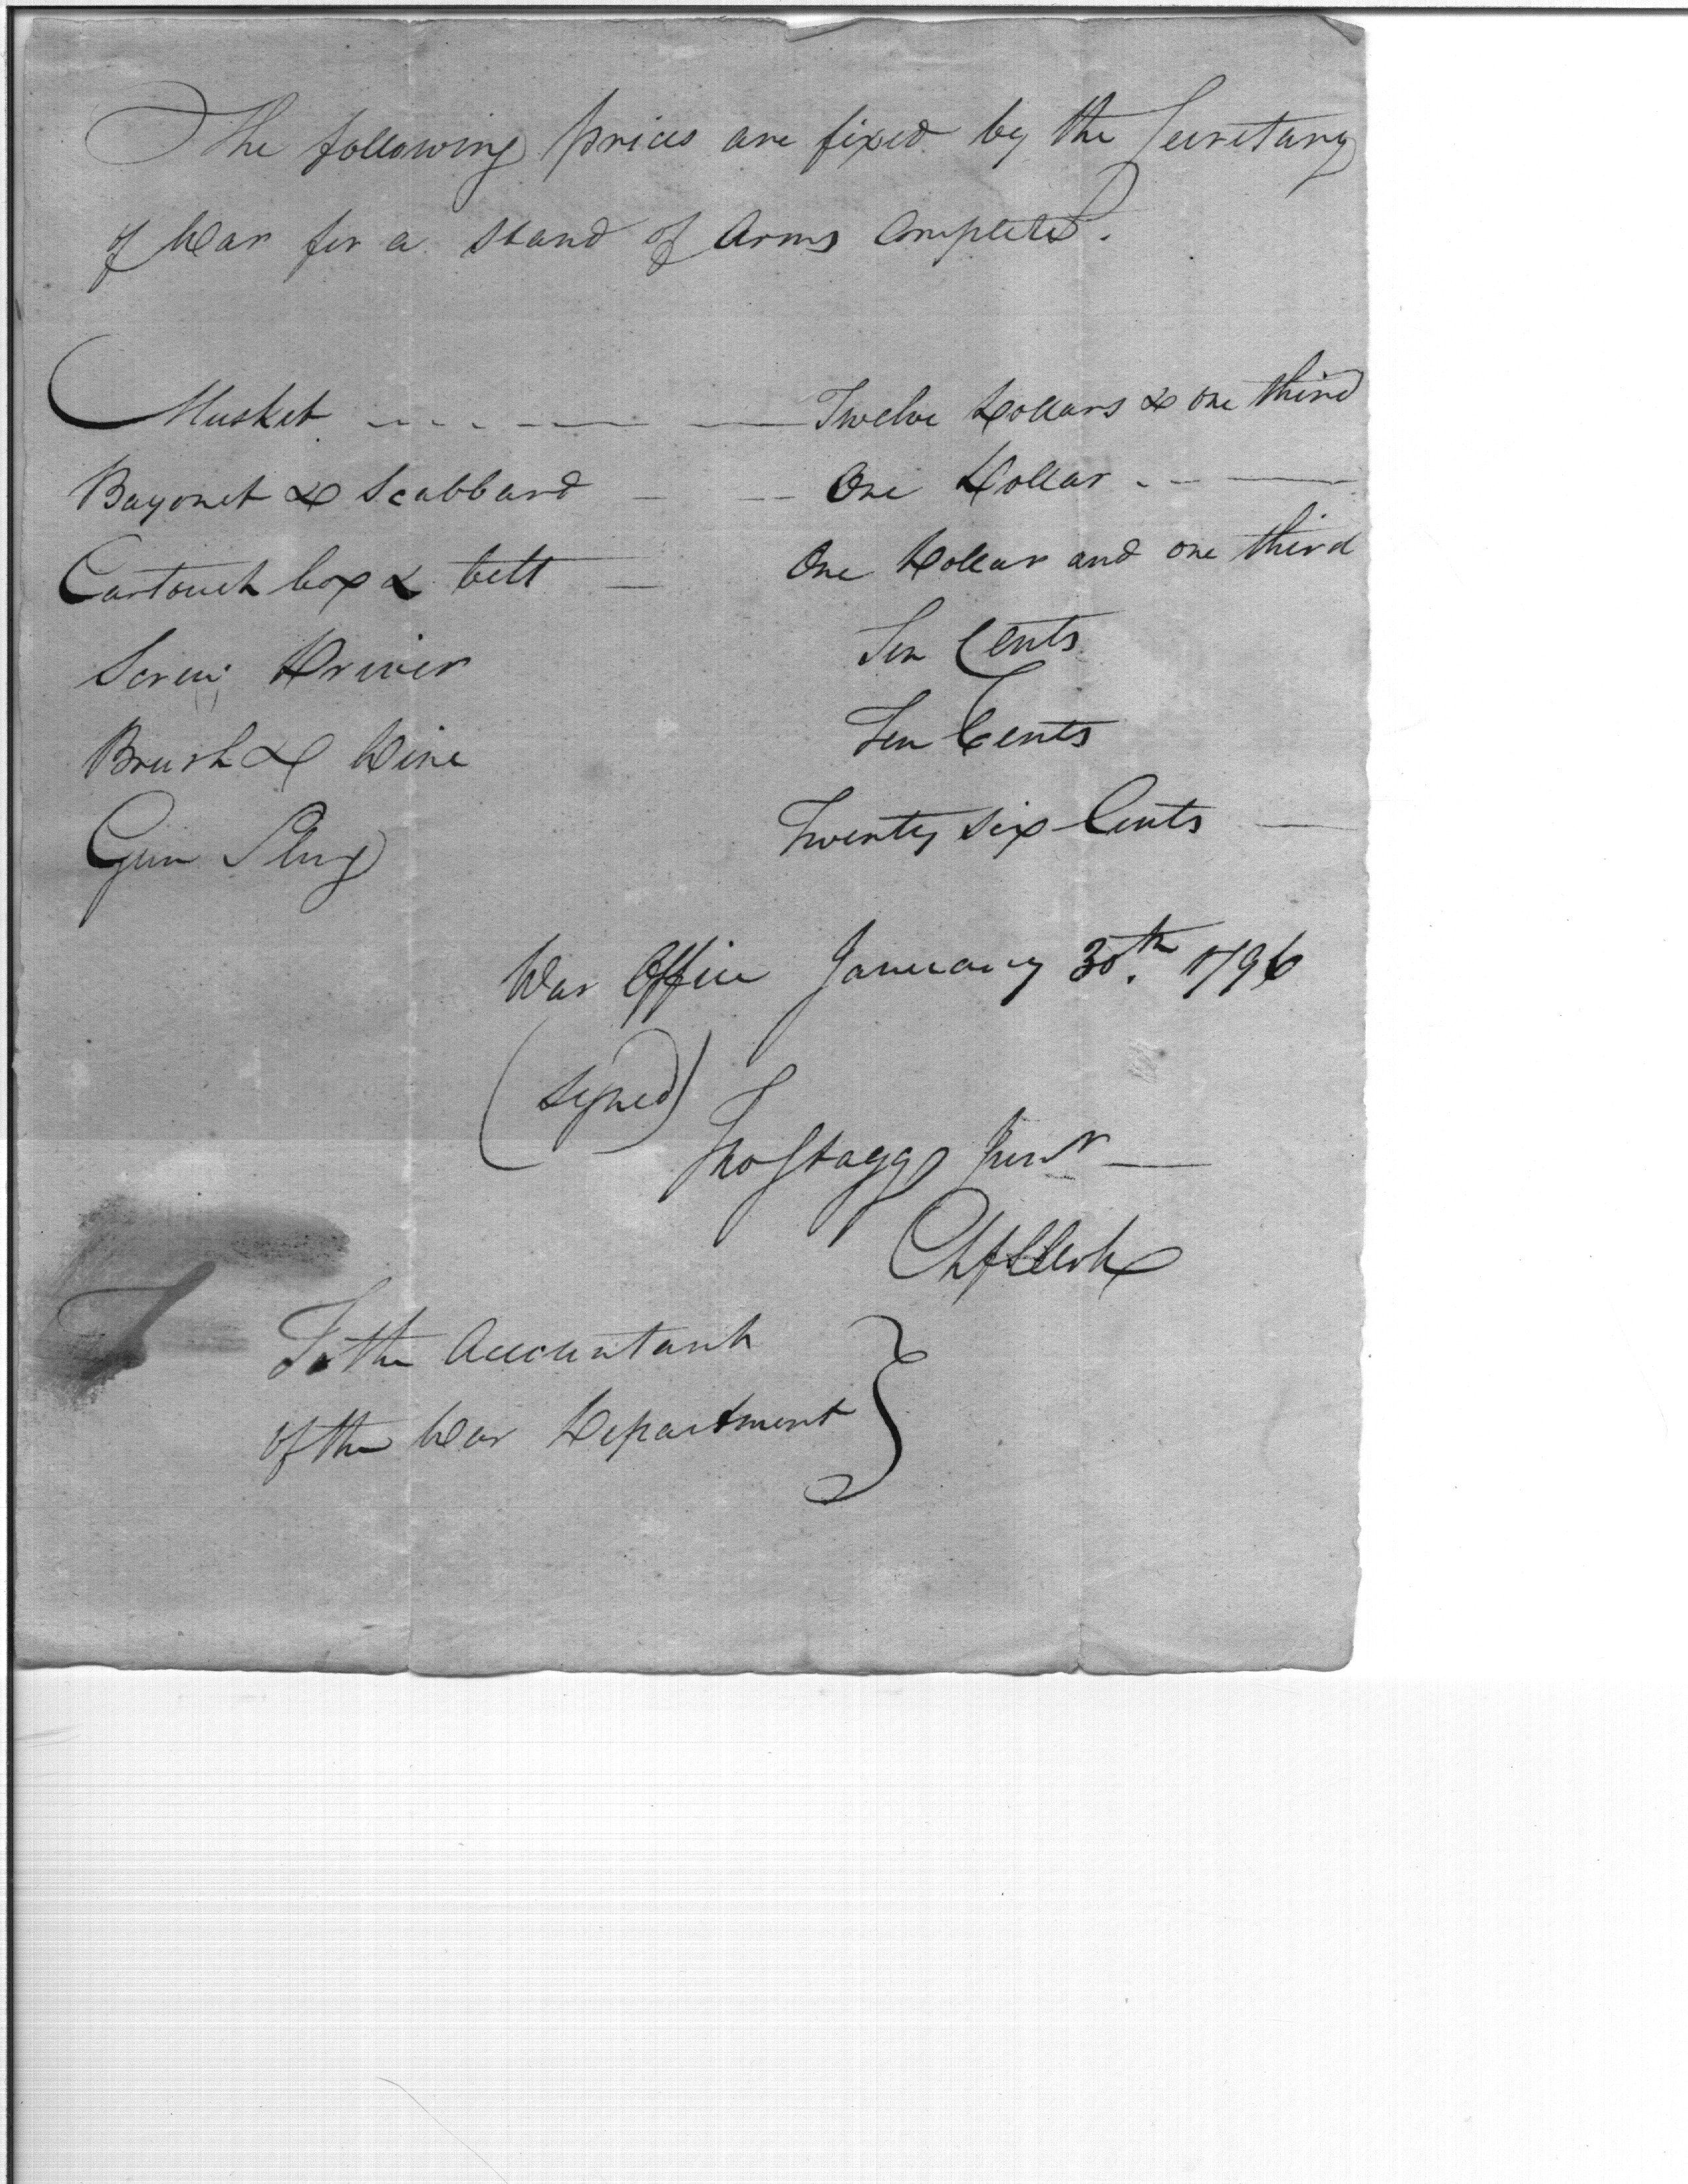 The following prices are fixed by the Secretary
of War for a Stand of Arms Compleated.
Musket Twelve Dollars & one third
Bayonet & Scabbard One Dollar
Cartouch box & belt One Dollar and one third
Screw Driver Ten Cents
Brush & Wire Ten Cents
Gun Sling Twenty six Cents
War Office January 30th. 1796
(signed)
Jno Stagg Junr
Chf Clerk
To the Accountant
of the War Department